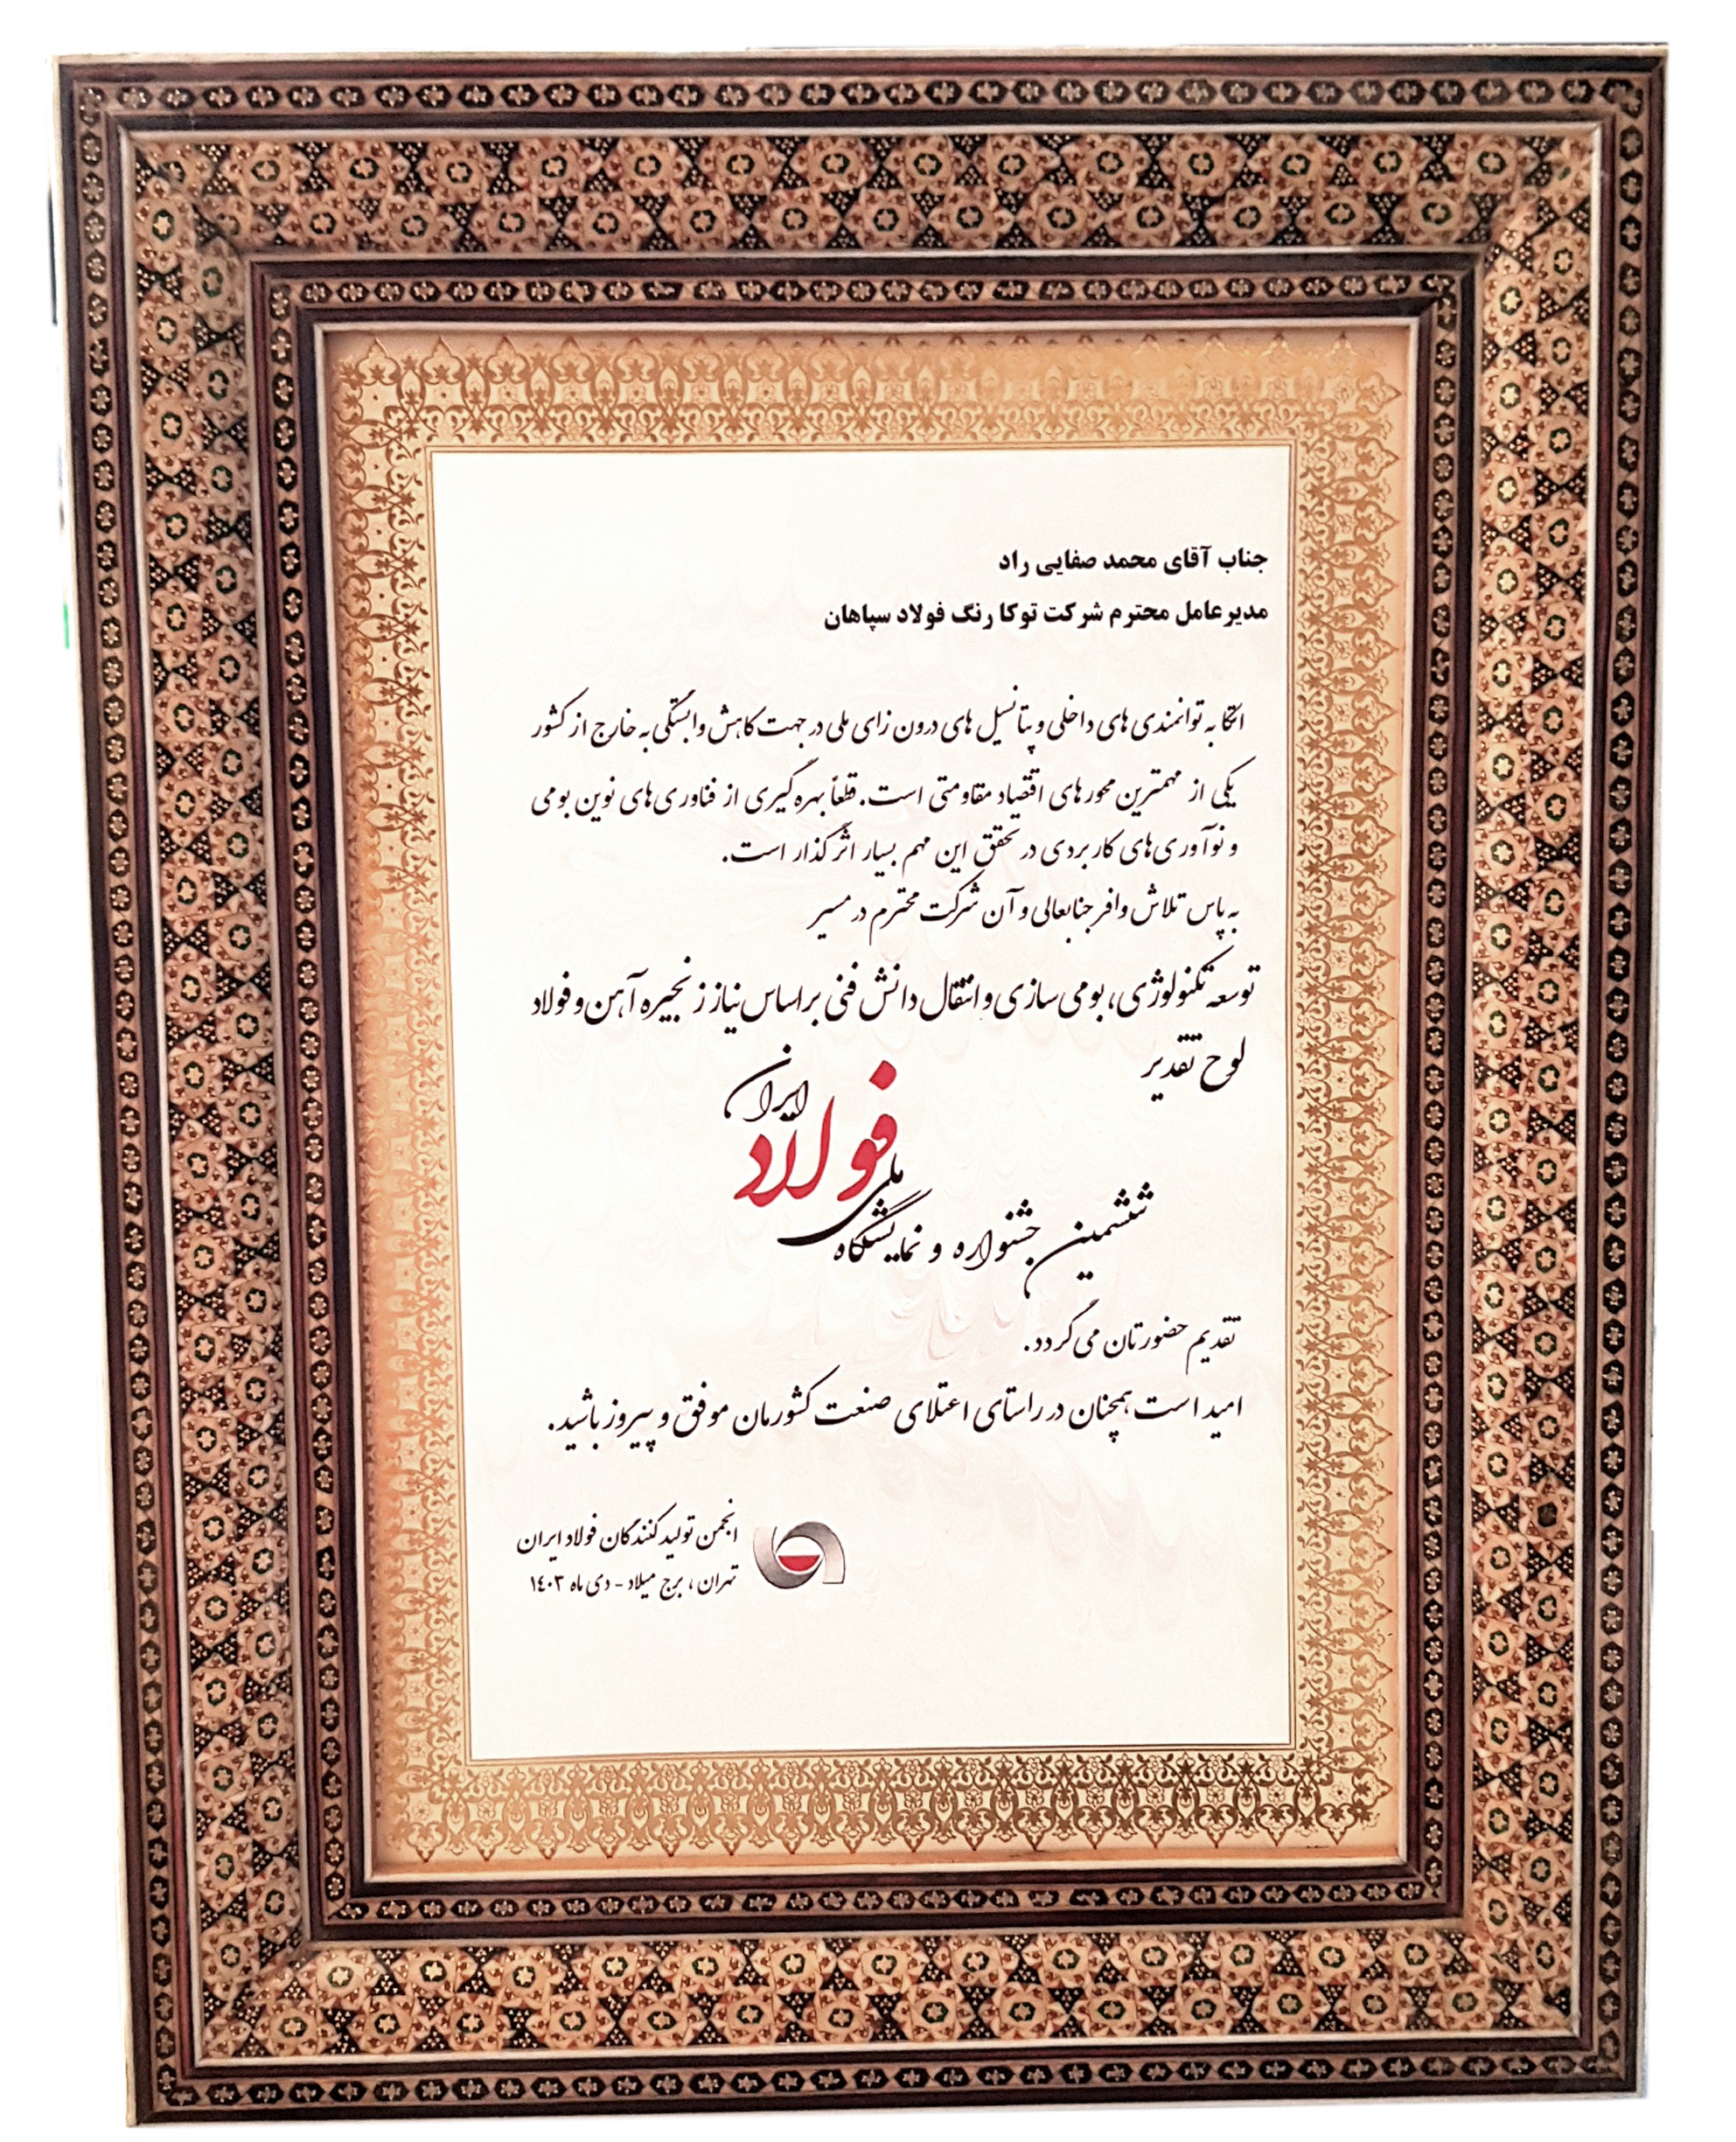 جناب آقای محمد صفایی راد
مدیرعامل محترم شرکت توکا رنگ فولاد سپاهان
اتکا به توانمندی های داخلی و پتانسیل های درون زای ملی در جهت کاهش وابستگی به خارج از کشور
یکی از مهمترین محورهای اقتصاد مقاومتی است. قطعاً بهره گیری از فناوری های نوین بومی
و نوآوری های کاربردی در تحقق این مهم بسیار اثرگذار است.
به پاس تلاش وافر جنابعالی و آن شرکت محترم در مسیر
توسعه تکنولوژی، بومی سازی و انتقال دانش فنی براساس نیاز زنجیره آهن و فولاد
لوح تقدیر
ششمین جشنواره و نمایشگاه ملی فولاد ایران
تقدیم حضورتان می گردد.
امید است همچنان در راستای اعتلای صنعت کشورمان موفق و پیروز باشید.
انجمن تولیدکنندگان فولاد ایران
تهران، برج میلاد - دی ماه ۱٤۰۳